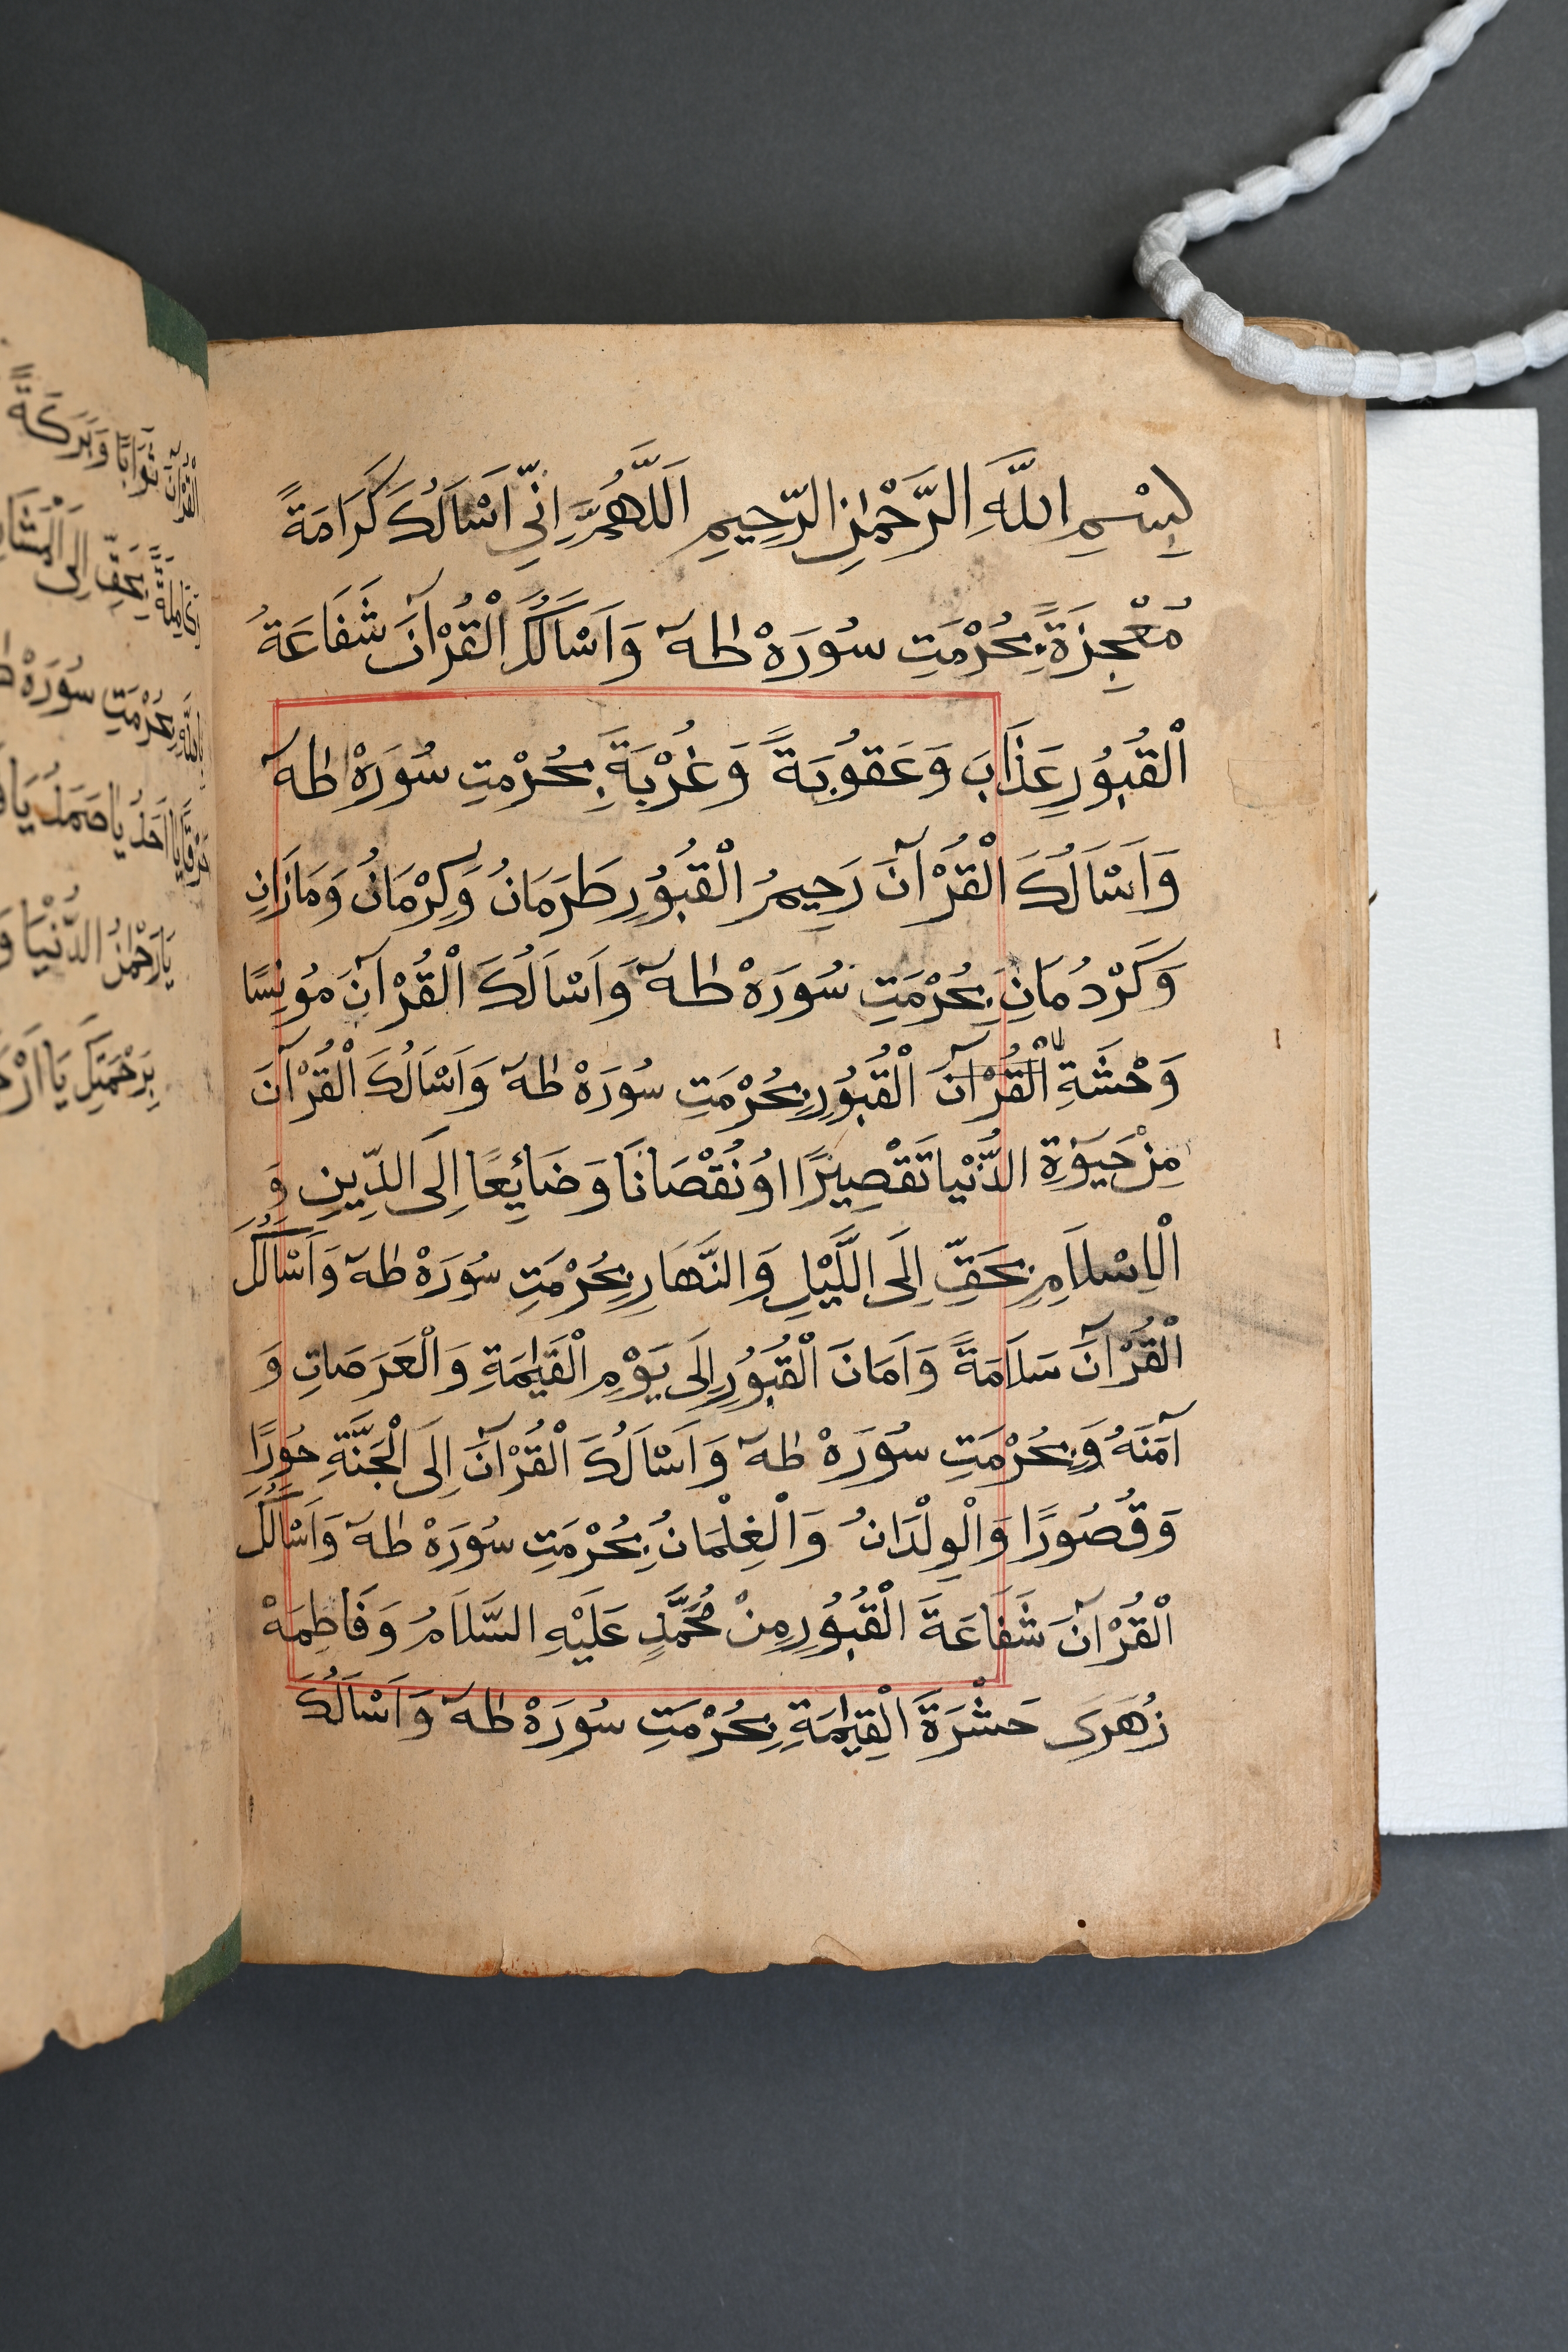 بِسْمِ اللَّهِ الرَّحْمٰنِ الرَّحِيمِ اَللَّهُمَّ اِنِّي اَسْاَلُكَ كَرَامَةً
مُعْجِزَةً بِحُرْمَتِ سُورَهْ طٰهٓ وَاَسْاَلُكَ الْقُرْآنَ شَفَاعَةُ
الْقُبُورِ عَذَابَ وَعَقُوبَةً وَغُرْبَةَ بِحُرْمتِ سُورَهْ طٰهٓ
وَاَسْاَلُكَ الْقُرْآنَ رَحِيمُ الْقُبُورِ طَرَمَانُ وَكِرْمَانُ وَمَازَانِ
وَكَرْدُمَانِ بِحُرْمَتِ سُورَهْ طٰهٓ وَاَسْاَلُكَ الْقُرْآنَ مُونِسًا
وَحْشَةِ الْقُرْآنَ الْقُبُورِ بِحُرْمَتِ سُورَهْ طٰهٓ وَاَسْاَلُكَ الْقُرْآنَ
مِنْ حَيٰوةِ الدُّنْيَا تَقْصِيرًا اوُ نُقْصَانًا وَضَائِعًا اِلَى الدِّينِ وَ
الْاِسْلَامِ بِحَقِّ اِلَى اللَّيْلِ وَالنَّهَارِ بِحُرْمَتِ سُورَهْ طٰهٓ وَاَسْاَلُكَ
الْقُرْآنَ سَلَامَةً وَاَمَانَ الْقُبُورِ اِلَى يَوْمِ الْقَيٰمَةِ وَالْعَرَصَاتِ وَ
آمَنَهُ وَبِحُرْمَتِ سُورَهْ طٰهٓ وَاَسْاَلُكَ الْقُرْآنَ اِلَى الْجَنَّةِ حُورًا
وَقُصُورًا وَالْوِلْدَانُ وَالْغِلْمَانُ بِحُرْمَتِ سُورَهْ طٰهٓ وَاَسْاَلُكَ
الْقُرْآنَ شَفَاعَةَ الْقُبُورِ مِنْ مُحَمَّدٍ عَلَيْهِ السَّلَامُ وَفَاطِمَهْ
زُهَرَى حَشْرَةَ الْقِيٰمَةِ بِحُرْمَتِ سُورَهْ طٰهٓ وَاَسْاَلُكَ